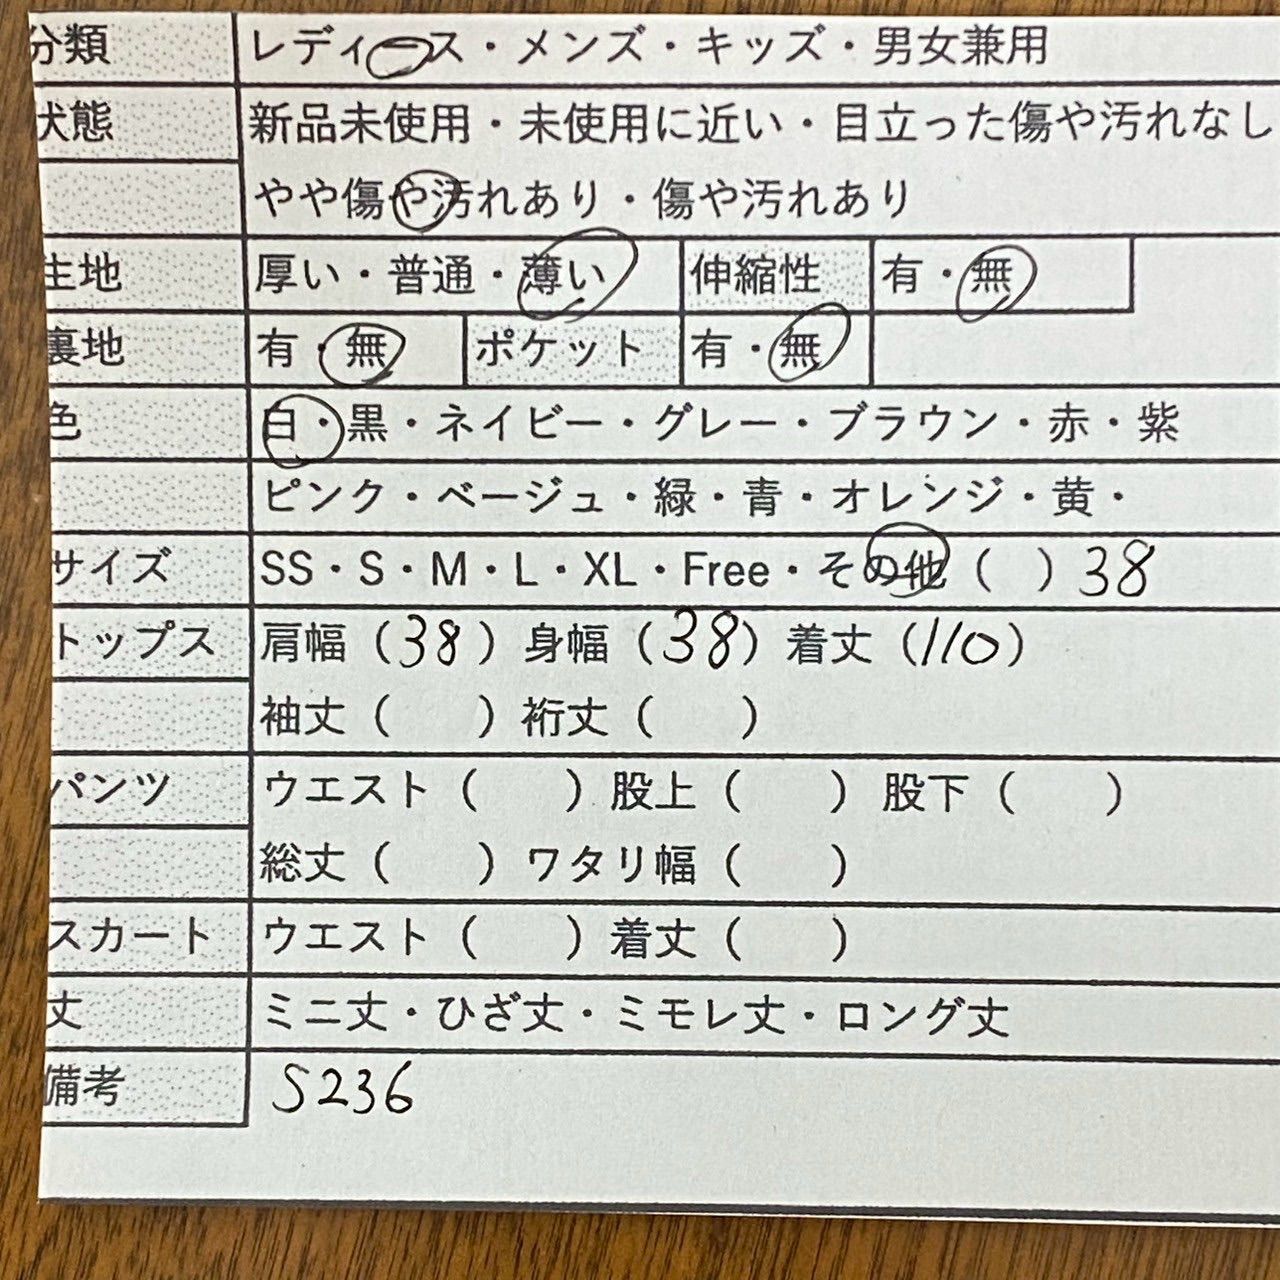 分類 レディース・メンズ・キッズ・男女兼用
状態 新品未使用・未使用に近い・目立った傷や汚れなし
やや傷や汚れあり・傷や汚れあり
生地 厚い・普通・薄い 伸縮性 有・無
裏地 有・無 ポケット 有・無
色 白・黒・ネイビー・グレー・ブラウン・赤・紫
ピンク・ベージュ・緑・青・オレンジ・黄・
サイズ SS・S・M・L・XL・Free・その他（ ）38
トップス 肩幅（38）身幅（38）着丈（110）
袖丈（ ）裄丈（ ）
パンツ ウエスト（ ）股上（ ）股下（ ）
総丈（ ）ワタリ幅（ ）
スカート ウエスト（ ）着丈（ ）
丈 ミニ丈・ひざ丈・ミモレ丈・ロング丈
備考 S236